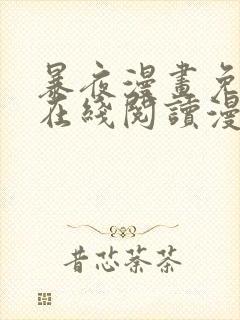 暴夜漫畫免
在綫閱讀漫
昔芯萘茶